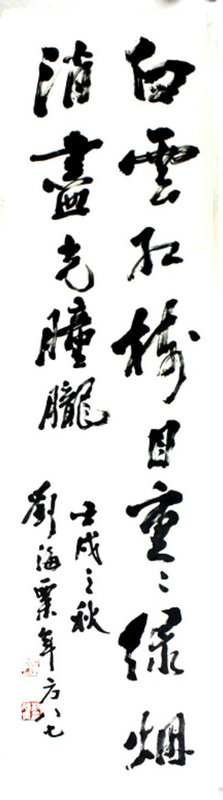 白雲紅樹目重重綠烟
消盡光瞳朧
壬戌之秋
劉海粟年方八七